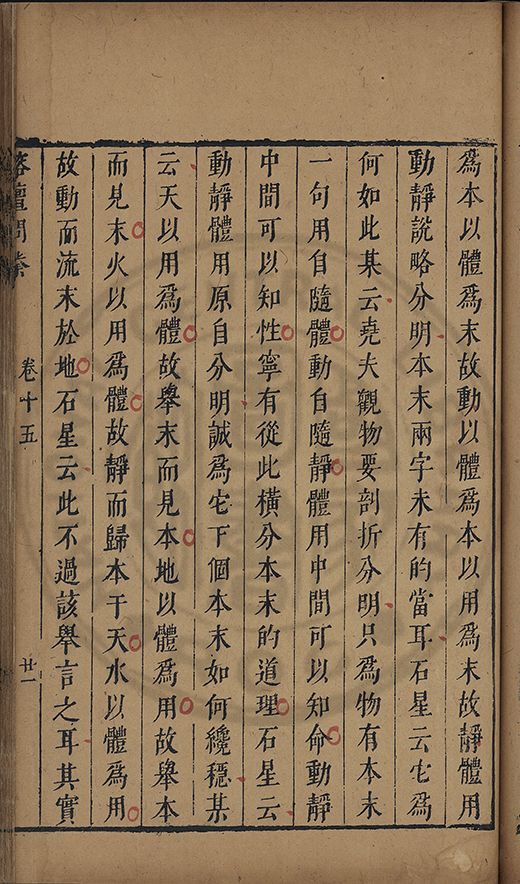 爲本以體爲末故動以體爲本以用爲末故靜體用
動靜說略分明本末兩字未有的當耳石星云宅爲
何如此某云堯夫觀物要剖折分明只爲物有本末
一句用自隨體動自隨靜體用中間可以知命動靜
中間可以知性寧有從此橫分本末的道理石星云
動靜體用原自分明誠爲宅下個本末如何纔穩某
云天以用爲體故舉末而見本地以體爲用故舉本
而見末火以用爲體故靜而歸本于天水以體爲用
故動而流末於地石星云此不過該舉言之耳其實
榕壇問業 卷十五 廿一